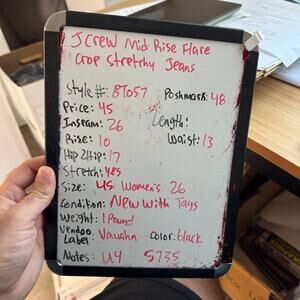 J Crew Mid Rise Flare
Crop Stretchy Jeans
Style #: BT057 Poshmark: 48
Price: 45
Inseam: 26 Length:
Rise: 10 Waist: 13
Hip 2 Hip: 17
Stretch: yes
Size: Women's 26
Condition: New with Tags
Weight: 1 Pound
Vendoo Label Vaughn Color: black
Notes: U4 5735